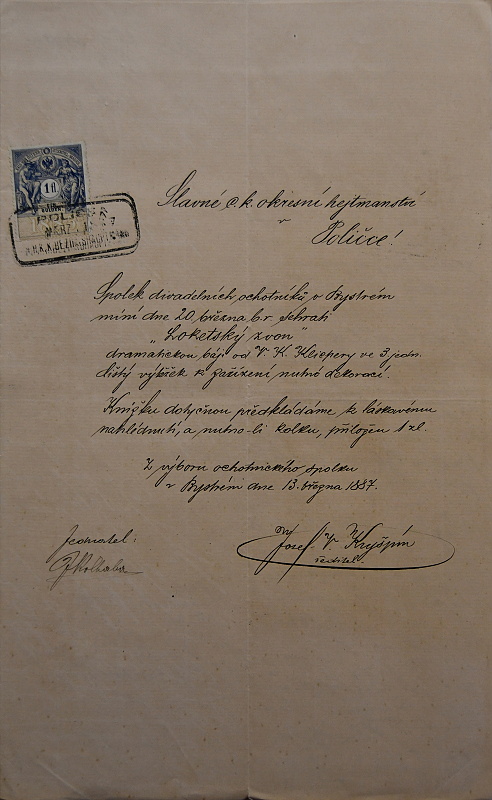 1 fl
POLIČKA
MÄRZ 87
Slavné c. k. okresní hejtmanství
v
Poličce!
Spolek divadelních ochotníků v Bystrém
míní dne 20. března b. r. sehrati
„Loketský zvon"
dramatickou báji od V. K. Klicpery ve 3 jedn.
čistý výtěžek k zařízení nutné dekorací.
Knížku dotyčnou předkládáme k láskavému
nahlédnutí, a nutno-li kolku, přiložen 1 zl.
Z výboru ochotnického spolku
v Bystrém dne 13. března 1887.
Jednatel:
Josef V. Kryšpín
ředitel.